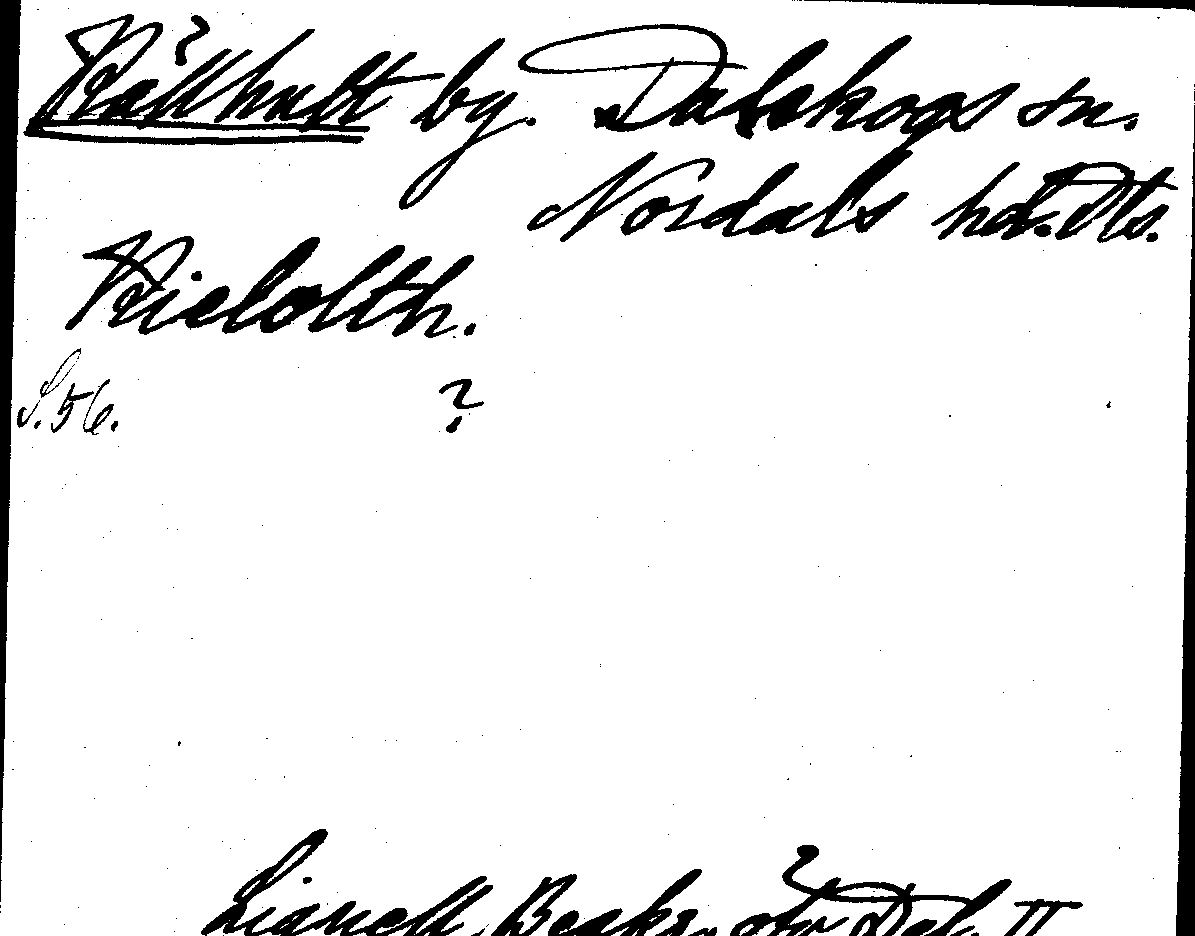 Rållhult by. Dalskogs sn.
Nordals hd. Dls.
Rielolth.
S. 56. ?
Lignell, Beskr. öfv Dal. II